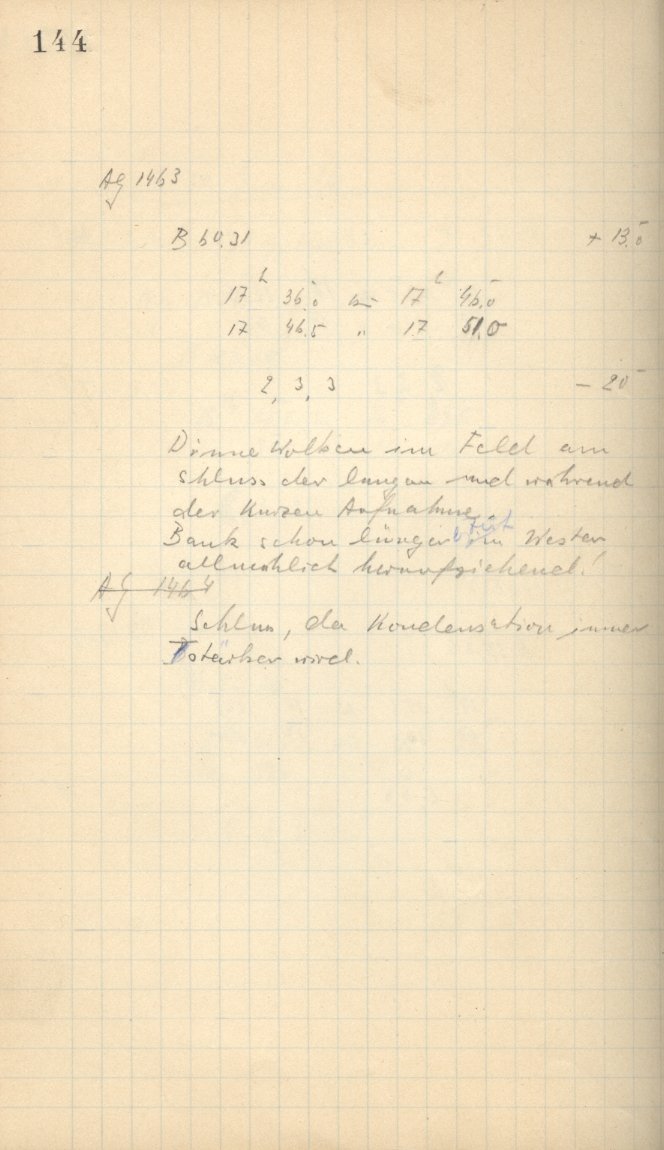 144
AG 1463
B 60.31 + 13.0
17 h 36.0 bis 17 h 46.0
17 46.5 " 17 51.0
2, 3, 3 - 20
Dünne Wolken im Feld am
Schluss der langen und während
der kurzen Aufnahme.
Zeit
Bank schon länger im Westen
allmählich heraufziehend!
AG 1464
Schluss, da Kondensation immer
stärker wird.